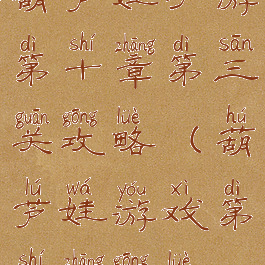 葫芦娃手游
dì shí zhāng dì sān
第十章第三
guān gōng lüè hú
关攻略（葫
lú wá yóu xì dì
芦娃游戏第
shí zhāng gōng lüè